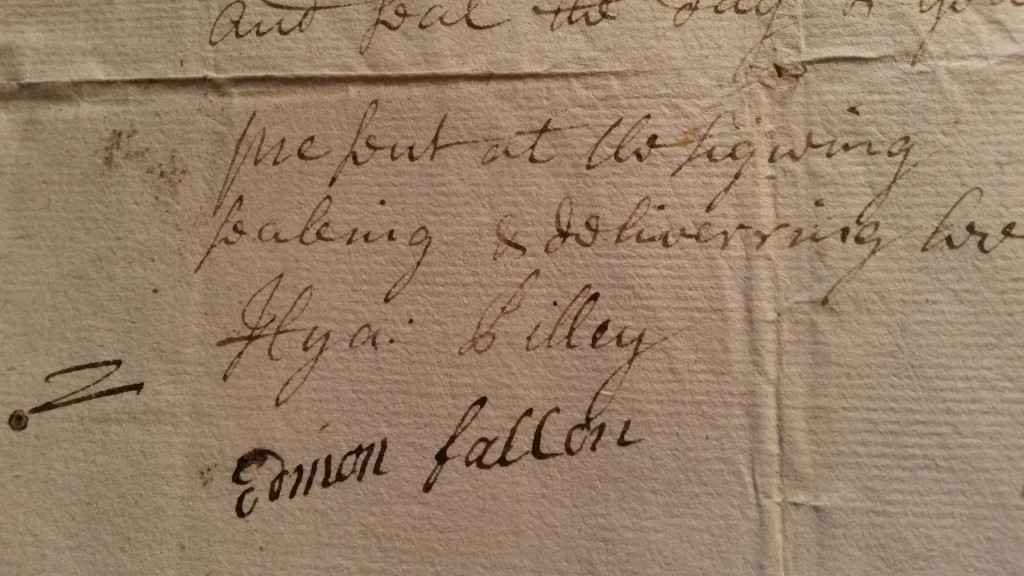 and seal the day & year
present at the signing
sealeing & deliverring
Hya: Lilley
Edmon fallon